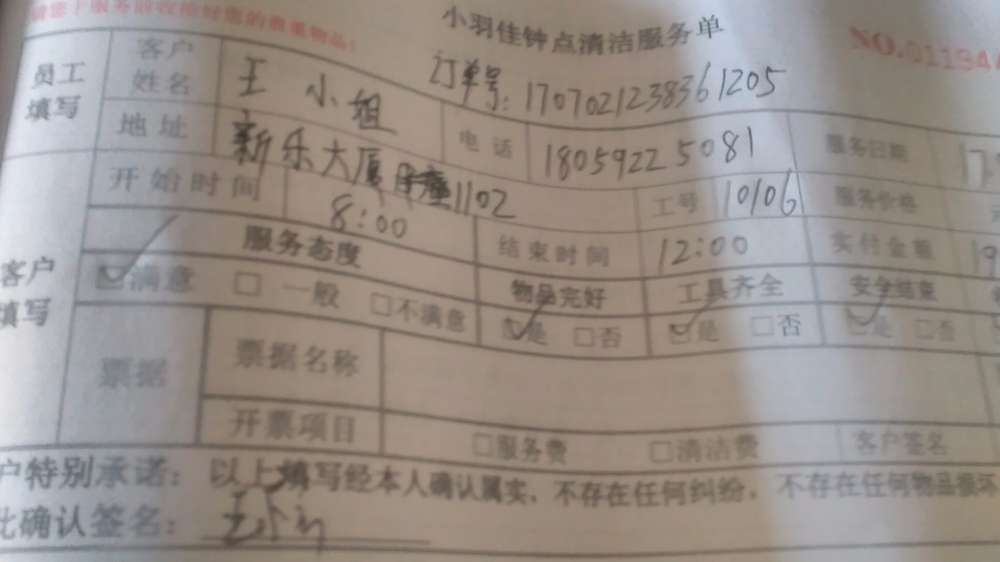 请您于服务前收拾好您的贵重物品!
小羽佳钟点清洁服务单
NO.01194
员工填写 客户姓名 王小姐 订单号:1707021238361205
地址 新乐大厦 1102 电话 18059225081 服务日期 17
开始时间 8:00 工号 10106 服务价格
服务态度 结束时间 12:00 实付金额 19
客户填写 满意 一般 不满意 物品完好 工具齐全 安全结束
是 否 是 否 是 否
票据 票据名称
开票项目 服务费 清洁费 客户签名
户特别承诺:以上填写经本人确认属实,不存在任何纠纷,不存在任何物品损坏
此确认签名: